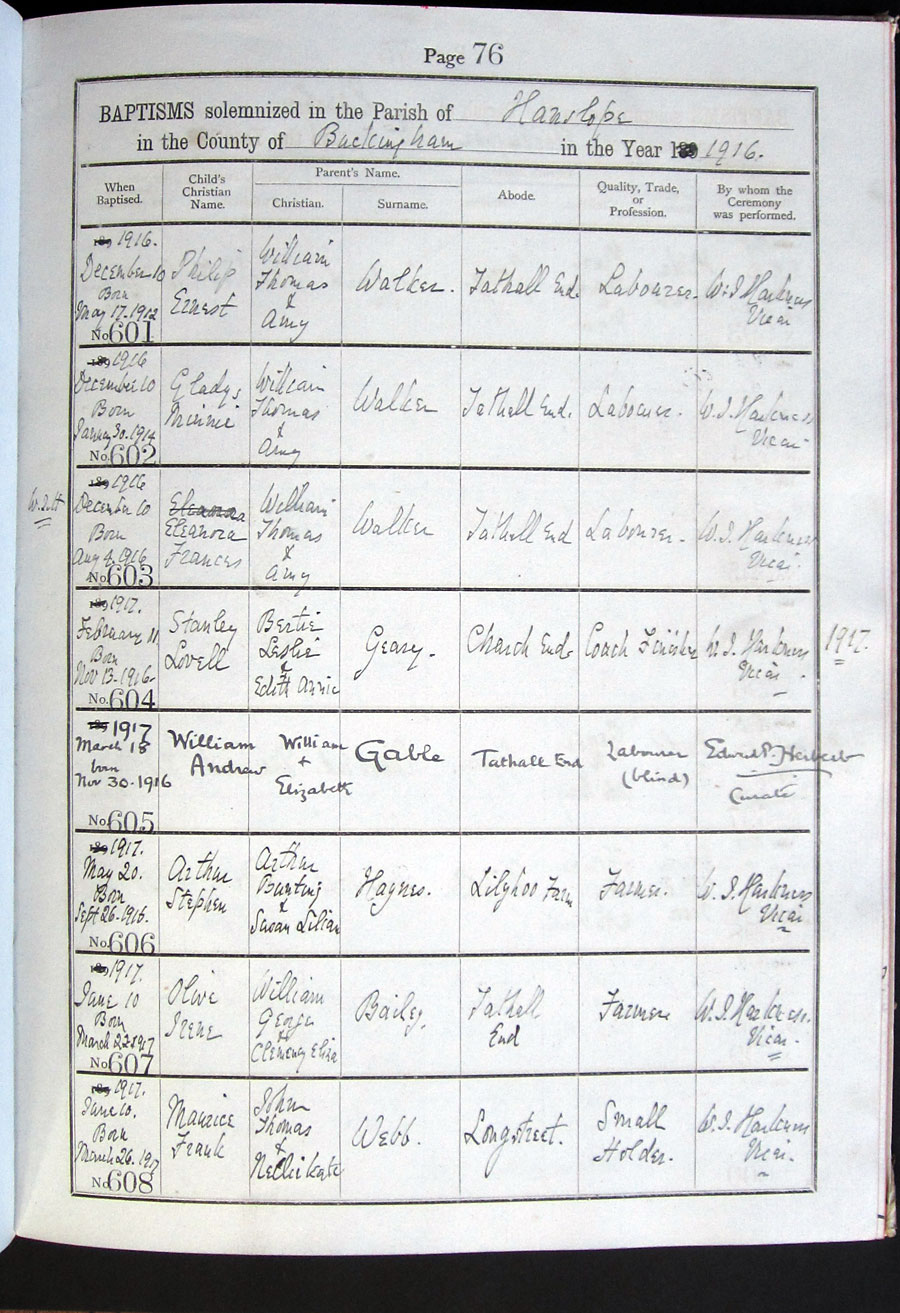 Page 76
BAPTISMS solemnized in the Parish of Hanslope
in the County of Buckingham in the Year 1916.
When Baptised.
Child's Christian Name.
Parent's Name.
Christian.
Surname.
Abode.
Quality, Trade, or Profession.
By whom the Ceremony was performed.
1916.
December 10
Born
May 17. 1912
No. 601
Philip
Ernest
William
Thomas
&
Amy
Walker.
Tathall End.
Labourer.
W. J. Harkness
Vicar
1916
December 10
Born
January 30. 1914
No. 602
Gladys
Minnie
William
Thomas
&
Amy
Walker
Tathall End.
Labourer.
W. J. Harkness
Vicar
W. J. H
1916
December 10
Born
Aug 4. 1916
No. 603
Eleanora
Eleanora
Frances
William
Thomas
&
Amy
Walker
Tathall End
Labourer.
W. J. Harkness
Vicar.
1917.
February 11
Born
Nov 13. 1916.
No. 604
Stanley
Lovell
Bertie
Leslie
&
Edith Annie
Geary.
Church End
Coach Finisher
W. J. Harkness
Vicar
1917.
1917
March 18
born
Nov 30. 1916
No. 605
William
Andrew
William
+
Elizabeth
Gable
Tathall End
Labourer
(blind)
Edward P. Herbert
Curate
1917.
May 20.
Born
Sept 26. 1916.
No. 606
Arthur
Stephen
Arthur
Bunting
&
Susan Lilian
Haynes.
Lilyhoo Farm
Farmer.
W. J. Harkness
Vicar
1917.
June 10
Born
March 23 1917
No. 607
Olive
Irene
William
George
&
Clemency Eliza
Bailey.
Tathall
End
Farmer
W. J. Harkness.
Vicar.
1917.
June 10.
Born
March 26. 1917
No. 608
Maurice
Frank
John
Thomas
&
Nellie Kate
Webb.
Longstreet.
Small
Holder.
W. J. Harkness
Vicar.